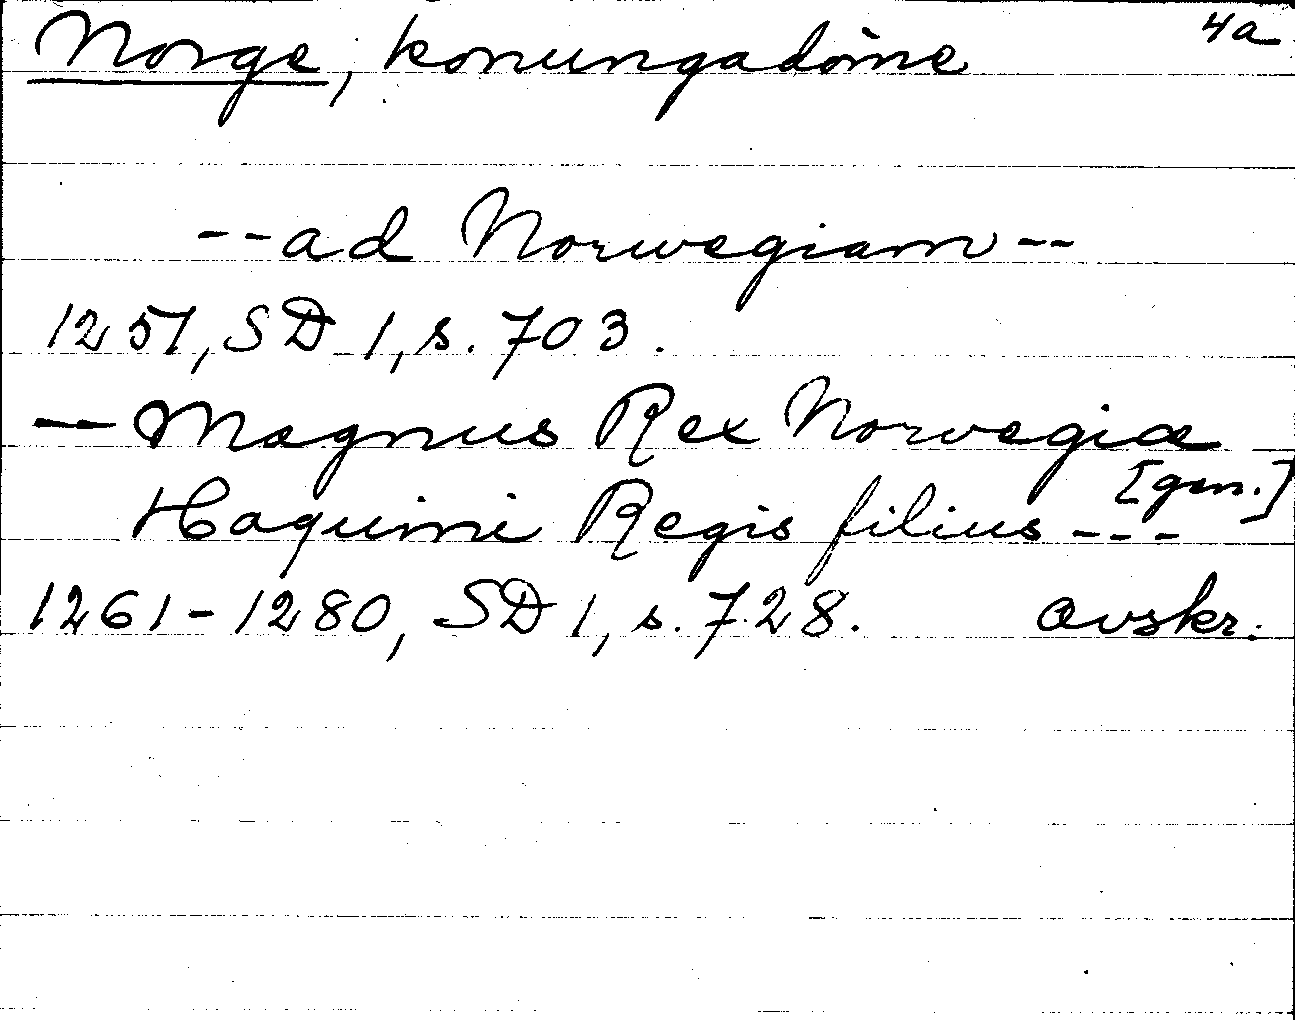 Norge, konungadöme 4a
--ad Norwegiam--
1251, SD 1, s. 703.
— Magnus Rex Norvegiæ
[gen.]
Haquini Regis filius ---
1261-1280, SD 1, s. 728. avskr.